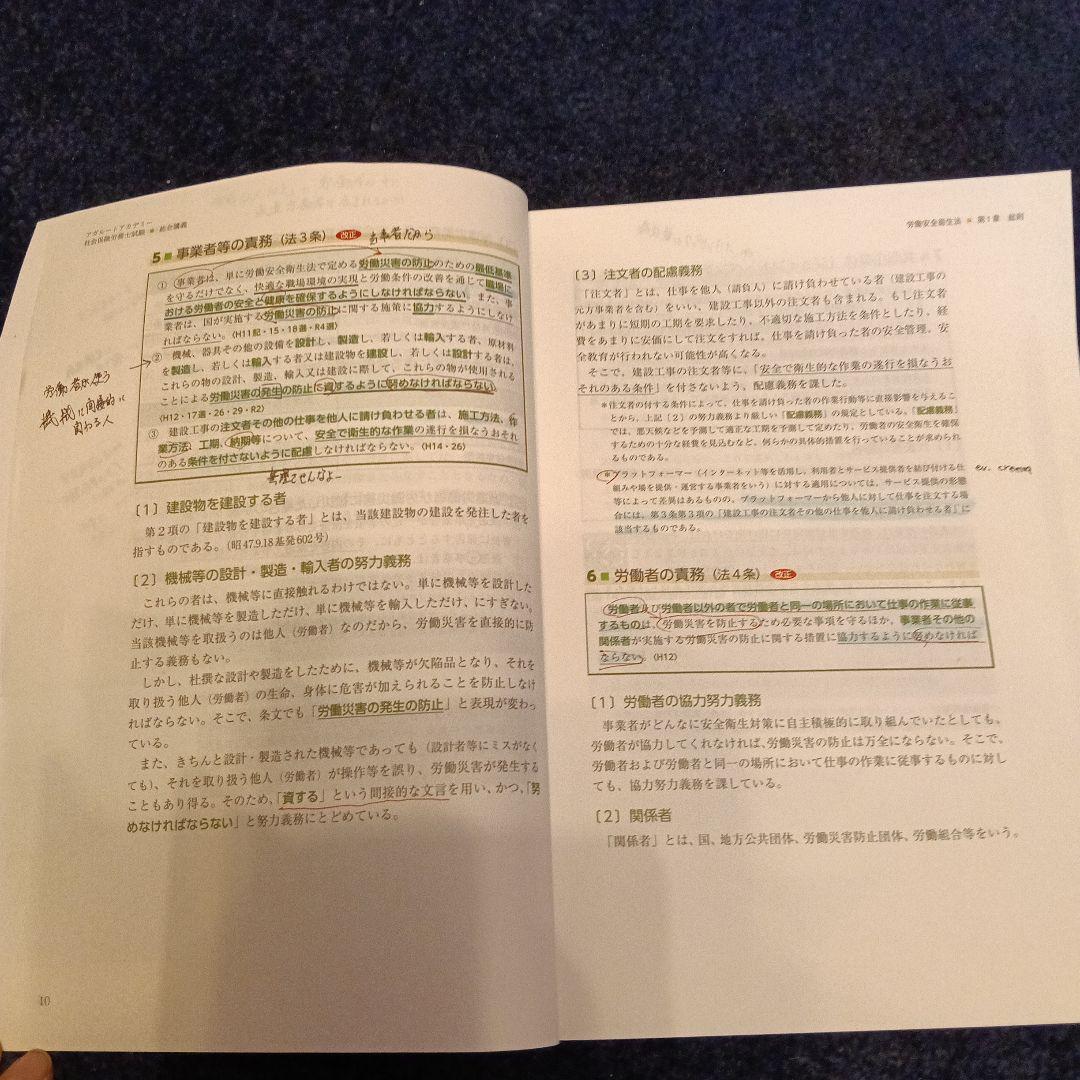 アガルートアカデミー
社会保険労務士試験 ■ 総合講義
5 ■ 事業者等の責務（法３条） 改正
当事者だから
① 事業者は、単に労働安全衛生法で定める労働災害の防止のための最低基準
を守るだけでなく、快適な職場環境の実現と労働条件の改善を通じて職場に
おける労働者の安全と健康を確保するようにしなければならない。また、事
業者は、国が実施する労働災害の防止に関する施策に協力するようにしなけ
ればならない。（H11記・15・18選・R4選）
② 機械、器具その他の設備を設計し、製造し、若しくは輸入する者、原材料
を製造し、若しくは輸入する者又は建設物を建設し、若しくは設計する者は、
これらの物の設計、製造、輸入又は建設に際して、これらの物が使用される
ことによる労働災害の発生の防止に資するように努めなければならない。
（H12・17選・26・29・R2）
③ 建設工事の注文者その他の仕事を他人に請け負わせる者は、施工方法、作
業方法、工期、納期等について、安全で衛生的な作業の遂行を損なうおそれ
のある条件を付さないように配慮しなければならない。（H14・26）
無理させんなよー
労働者が使う
機械に間接的に
関わる人
〔１〕建設物を建設する者
第２項の「建設物を建設する者」とは、当該建設物の建設を発注した者を
指すものである。（昭47.9.18基発602号）
〔２〕機械等の設計・製造・輸入者の努力義務
これらの者は、機械等に直接触れるわけではない。単に機械等を設計した
だけ、単に機械等を製造しただけ、単に機械等を輸入しただけ、にすぎない。
当該機械等を取扱うのは他人（労働者）なのだから、労働災害を直接的に防
止する義務もない。
しかし、杜撰な設計や製造をしたために、機械等が欠陥品となり、それを
取り扱う他人（労働者）の生命、身体に危害が加えられることを防止しなけ
ればならない。そこで、条文でも「労働災害の発生の防止」と表現が変わっ
ている。
また、きちんと設計・製造された機械等であっても（設計者等にミスがなく
ても）、それを取り扱う他人（労働者）が操作等を誤り、労働災害が発生する
こともあり得る。そのため、「資する」という間接的な文言を用い、かつ、「努
めなければならない」と努力義務にとどめている。
10
労働安全衛生法 ■ 第１章 総則
〔３〕注文者の配慮義務
「注文者」とは、仕事を他人（請負人）に請け負わせている者（建設工事の
元方事業者を含む）をいい、建設工事以外の注文者も含まれる。もし注文者
があまりに短期の工期を要求したり、不適切な施工方法を条件としたり、経
費をあまりに安価にして注文をすれば、仕事を請け負った者の安全管理、安
全教育が行われない可能性が高くなる。
そこで、建設工事の注文者等に、「安全で衛生的な作業の遂行を損なうお
それのある条件」を付さないよう、配慮義務を課した。
＊注文者の付する条件によって、仕事を請け負った者の作業行動等に直接影響を与えるこ
とから、上記〔２〕の努力義務より厳しい「配慮義務」の規定としている。「配慮義務」
では、悪天候などを予測して適正な工期を予測して定めたり、労働者の安全衛生を確保
するための十分な経費を見込むなど、何らかの具体的措置を行っていることが求められ
るものである。
＊プラットフォーマー（インターネット等を活用し、利用者とサービス提供者を結び付ける仕
組みや場を提供・運営する事業者をいう）に対する適用については、サービス提供の形態
等によって差異はあるものの、プラットフォーマーから他人に対して仕事を注文する場
合には、第３条第３項の「建設工事の注文者その他の仕事を他人に請け負わせる者」に
該当するものである。
6 ■ 労働者の責務（法４条） 改正
労働者及び労働者以外の者で労働者と同一の場所において仕事の作業に従事
するものは、労働災害を防止するため必要な事項を守るほか、事業者その他の
関係者が実施する労働災害の防止に関する措置に協力するように努めなければ
ならない。（H12）
〔１〕労働者の協力努力義務
事業者がどんなに安全衛生対策に自主積極的に取り組んでいたとしても、
労働者が協力してくれなければ、労働災害の防止は万全にならない。そこで、
労働者および労働者と同一の場所において仕事の作業に従事するものに対し
ても、協力努力義務を課している。
〔２〕関係者
「関係者」とは、国、地方公共団体、労働災害防止団体、労働組合等をいう。